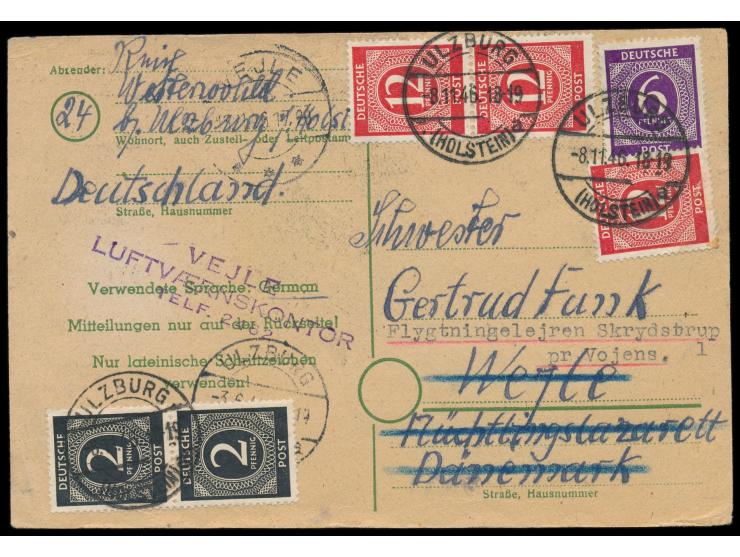 Absender:
24
bz. Ulzburg
Wohnort, auch Zustell- oder Leitpostamt
Deutschland.
Straße, Hausnummer
VEJLE
LUFTVÆRNSKONTOR
TELF.
Verwendete Sprache: German
Mitteilungen nur auf der Rückseite!
Nur lateinische Schriftzeichen
verwenden!
EJLE
ULZBURG
18-19
(HOLSTEIN)
-8.11.46.18-19
(HOLSTEIN)
ULZBURG
ULZBURG
DEUTSCHE POST
12 PFENNIG
DEUTSCHE POST
12 PFENNIG
DEUTSCHE POST
6 PFENNIG
DEUTSCHE POST
DEUTSCHE POST
2 PFENNIG
DEUTSCHE POST
2 PFENNIG
Schwester
Gertrud Funk
Flygtningelejren Skrydstrup
pr Vojens. 1
Wejle
Flüchtlingslazarett
Dänemark
Straße, Hausnummer